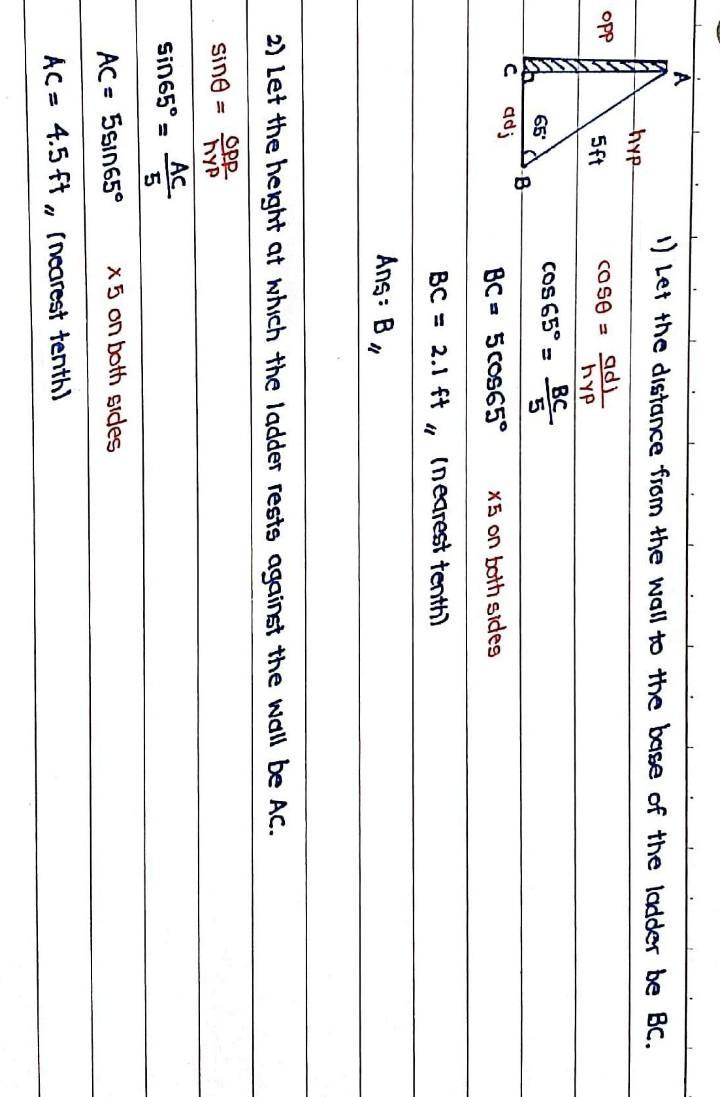 A
opp
hyp
5ft
65°
C
adj
B
1) Let the distance from the wall to the base of the ladder be BC.
cosθ = adj/hyp
cos65° = BC/5
BC = 5cos65° ×5 on both sides
BC = 2.1 ft,, (nearest tenth)
Ans: B,,
2) Let the height at which the ladder rests against the wall be AC.
sinθ = opp/hyp
sin65° = AC/5
AC = 5sin65° ×5 on both sides
AC = 4.5 ft,, (nearest tenth)